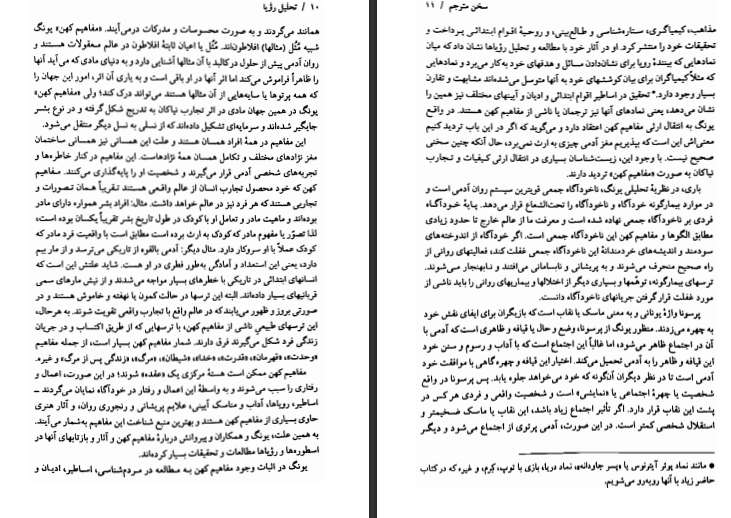 ۱۰ / تحلیل رؤیا
همانند می‌گردند و به صورت محسوسات و مدرکات درمی‌آیند. «مفاهیم کهن» یونگ
شبیه مُثُل (مثالها) افلاطون‌اند. مُثُل یا اعیان ثابتهٔ افلاطون در عالم معقولات هستند و
روان آدمی پیش از حلول در کالبد با آن مثالها آشنایی دارد و به دنیای مادی که می‌آید آنها
را ظاهراً فراموش می‌کند اما اثر آنها در او باقی است و به یاری آن اثر، امور این جهان را
که همه پرتوها یا سایه‌هایی از آن مثالها هستند می‌تواند درک کند؛ ولی «مفاهیم کهن»
یونگ در همین جهان مادی در اثر تجارب نیاکان به تدریج شکل گرفته و در نوع بشر
جایگیر شده‌اند و سرمایه‌ای تشکیل داده‌اند که از نسلی به نسل دیگر منتقل می‌شود.
این مفاهیم در همهٔ افراد همسان هستند و علت این همسانی نیز همسانی ساختمان
مغز نژادهای مختلف و تکامل همسان همهٔ نژادهاست. این مفاهیم در کنار خاطره‌ها و
تجربه‌های شخصی آدمی قرار می‌گیرند و شخصیت او را پایه‌گذاری می‌کنند. مفاهیم
کهن که خود محصول تجارب انسان از عالم واقعی هستند تقریباً همان تصورات و
تجاربی هستند که هر فرد نیز در عالم خواهد داشت. مثال: افراد بشر همواره دارای مادر
بوده‌اند و ماهیت مادر و تعامل او با کودک در طول تاریخ بشر تقریباً یکسان بوده است،
لذا تصوّر یا مفهوم مادر که کودک به ارث برده است مطابق است با واقعیت فرد مادر که
کودک عملاً با او سروکار دارد. مثال دیگر: آدمی بالقوه از تاریکی می‌ترسد و از مار بیم
دارد، یعنی این استعداد و آمادگی به‌طور فطری در او هست. شاید علتش این است که
انسانهای ابتدائی در تاریکی با خطرهای بسیار مواجه می‌شدند و از نیش مارهای سمی
قربانیهای بسیار داده‌اند. البته این ترسها در حالت کمون یا نهفته و خاموش هستند و در
صورتی بروز و ظهور می‌یابند که در عالم واقع با تجارب واقعی تقویت شوند. به هرحال،
این ترسهای طبیعیِ ناشی از مفاهیم کهن، با ترسهایی که از طریق اکتساب و در جریان
زندگی فرد شکل می‌گیرند فرق دارند. شمار مفاهیم کهن بسیار است، از جمله مفاهیم
«وحدت»، «قهرمان»، «قدرت»، «خدا»، «شیطان»، «مرگ»، «زندگی پس از مرگ» و غیره.
مفاهیم کهن ممکن است هستهٔ مرکزی یک «عقده» شوند؛ در این صورت، اعمال و
رفتاری را سبب می‌شوند و به واسطهٔ این اعمال و رفتار در خودآگاه نمایان می‌گردند ــ
اساطیر، رویاها، آداب و مناسک آیینی، علایم پریشانی و رنجوری روان، و آثار هنری
حاوی بسیاری از مفاهیم کهن هستند و بهترین منبع شناخت این مفاهیم به‌شمار می‌آیند.
به همین علت، یونگ و همکاران و پیروانش دربارهٔ مفاهیم کهن و آثار و بازتابهای آنها در
اسطوره‌ها و رؤیاها مطالعات و تحقیقات بسیار کرده‌اند.
یونگ در اثبات وجود مفاهیم کهن به مطالعه در مردم‌شناسی، اساطیر، ادیان و
سخن مترجم / ۱۱
مذاهب، کیمیاگری، ستاره‌شناسی و طالع‌بینی، و روحیهٔ اقوام ابتدائی پرداخت و
تحقیقات خود را منتشر کرد. او در آثار خود با مطالعه و تحلیل رؤیاها نشان داد که میان
نمادهایی که بینندهٔ رویا برای نشان‌دادن مسائل و هدفهای خود به‌کار می‌برد و نمادهایی
که مثلاً کیمیاگران برای بیان کوششهای خود به آنها متوسل می‌شده‌اند مشابهت و تقارن
بسیار وجود دارد.* تحقیق در اساطیر اقوام ابتدائی و ادیان و آیینهای مختلف نیز همین را
نشان می‌دهد، یعنی نمادهای آنها نیز ترجمان یا ناشی از مفاهیم کهن هستند. در واقع
یونگ به انتقال ارثی مفاهیم کهن اعتقاد دارد و می‌گوید که اگر در این باب تردید کنیم
معنی‌اش این است که بپذیریم مغز آدمی چیزی به ارث نمی‌برد، حال آنکه چنین سخنی
صحیح نیست. با وجود این، زیست‌شناسان بسیاری در انتقال ارثی کیفیات و تجارب
نیاکان به صورت «مفاهیم کهن» تردید دارند.
باری، در نظریهٔ تحلیلی یونگ، ناخودآگاه جمعی قویترین سیستم روان آدمی است و
در موارد بیمارگونه خودآگاه و ناخودآگاه را تحت‌الشعاع قرار می‌دهد. پایهٔ خودآگاه
فردی بر ناخودآگاه جمعی نهاده شده است و معرفت ما از عالم خارج تا حدود زیادی
مطابق الگوها و مفاهیم کهن این ناخودآگاه جمعی است. اگر خودآگاه از اندوخته‌های
سودمند و اندیشه‌های خردمندانهٔ این ناخودآگاه جمعی غفلت کند، فعالیتهای روانی از
راه صحیح منحرف می‌شوند و به پریشانی و نابسامانی می‌افتند و نابهنجار می‌شوند.
ترسهای بیمارگونه، توهّمها و بسیاری دیگر از اختلالها و بیماریهای روانی را باید ناشی از
مورد غفلت قرار گرفتن جریانهای ناخودآگاه دانست.
پرسونا واژهٔ یونانی و به معنی ماسک یا نقاب است که بازیگران برای ایفای نقش خود
به چهره می‌زدند. منظور یونگ از پرسونا، وضع و حال یا قیافه و ظاهری است که آدمی با
آن در اجتماع ظاهر می‌شود، اما غالباً این اجتماع است که با آداب و رسوم و سنن خود
این قیافه و ظاهر را به آدمی تحمیل می‌کند. اختیار این قیافه و چهره گاهی با موافقت خود
آدمی است تا در نظر دیگران آنگونه که خود می‌خواهد جلوه یابد. پس پرسونا در واقع
شخصیت یا چهرهٔ اجتماعی یا «نمایشی» است و شخصیت واقعی و فردی هر کس در
پشت این نقاب قرار دارد. اگر تأثیر اجتماع زیاد باشد، این نقاب یا ماسک ضخیمتر و
استقلال شخصی کمتر است. در این صورت، آدمی پرتوی از اجتماع می‌شود و دیگر
● مانند نماد پوئر آیترنوس یا «پسر جاودانه»، نماد دریا، بازی با توپ، کِرم، و غیره که در کتاب
حاضر زیاد با آنها روبه‌رو می‌شویم.